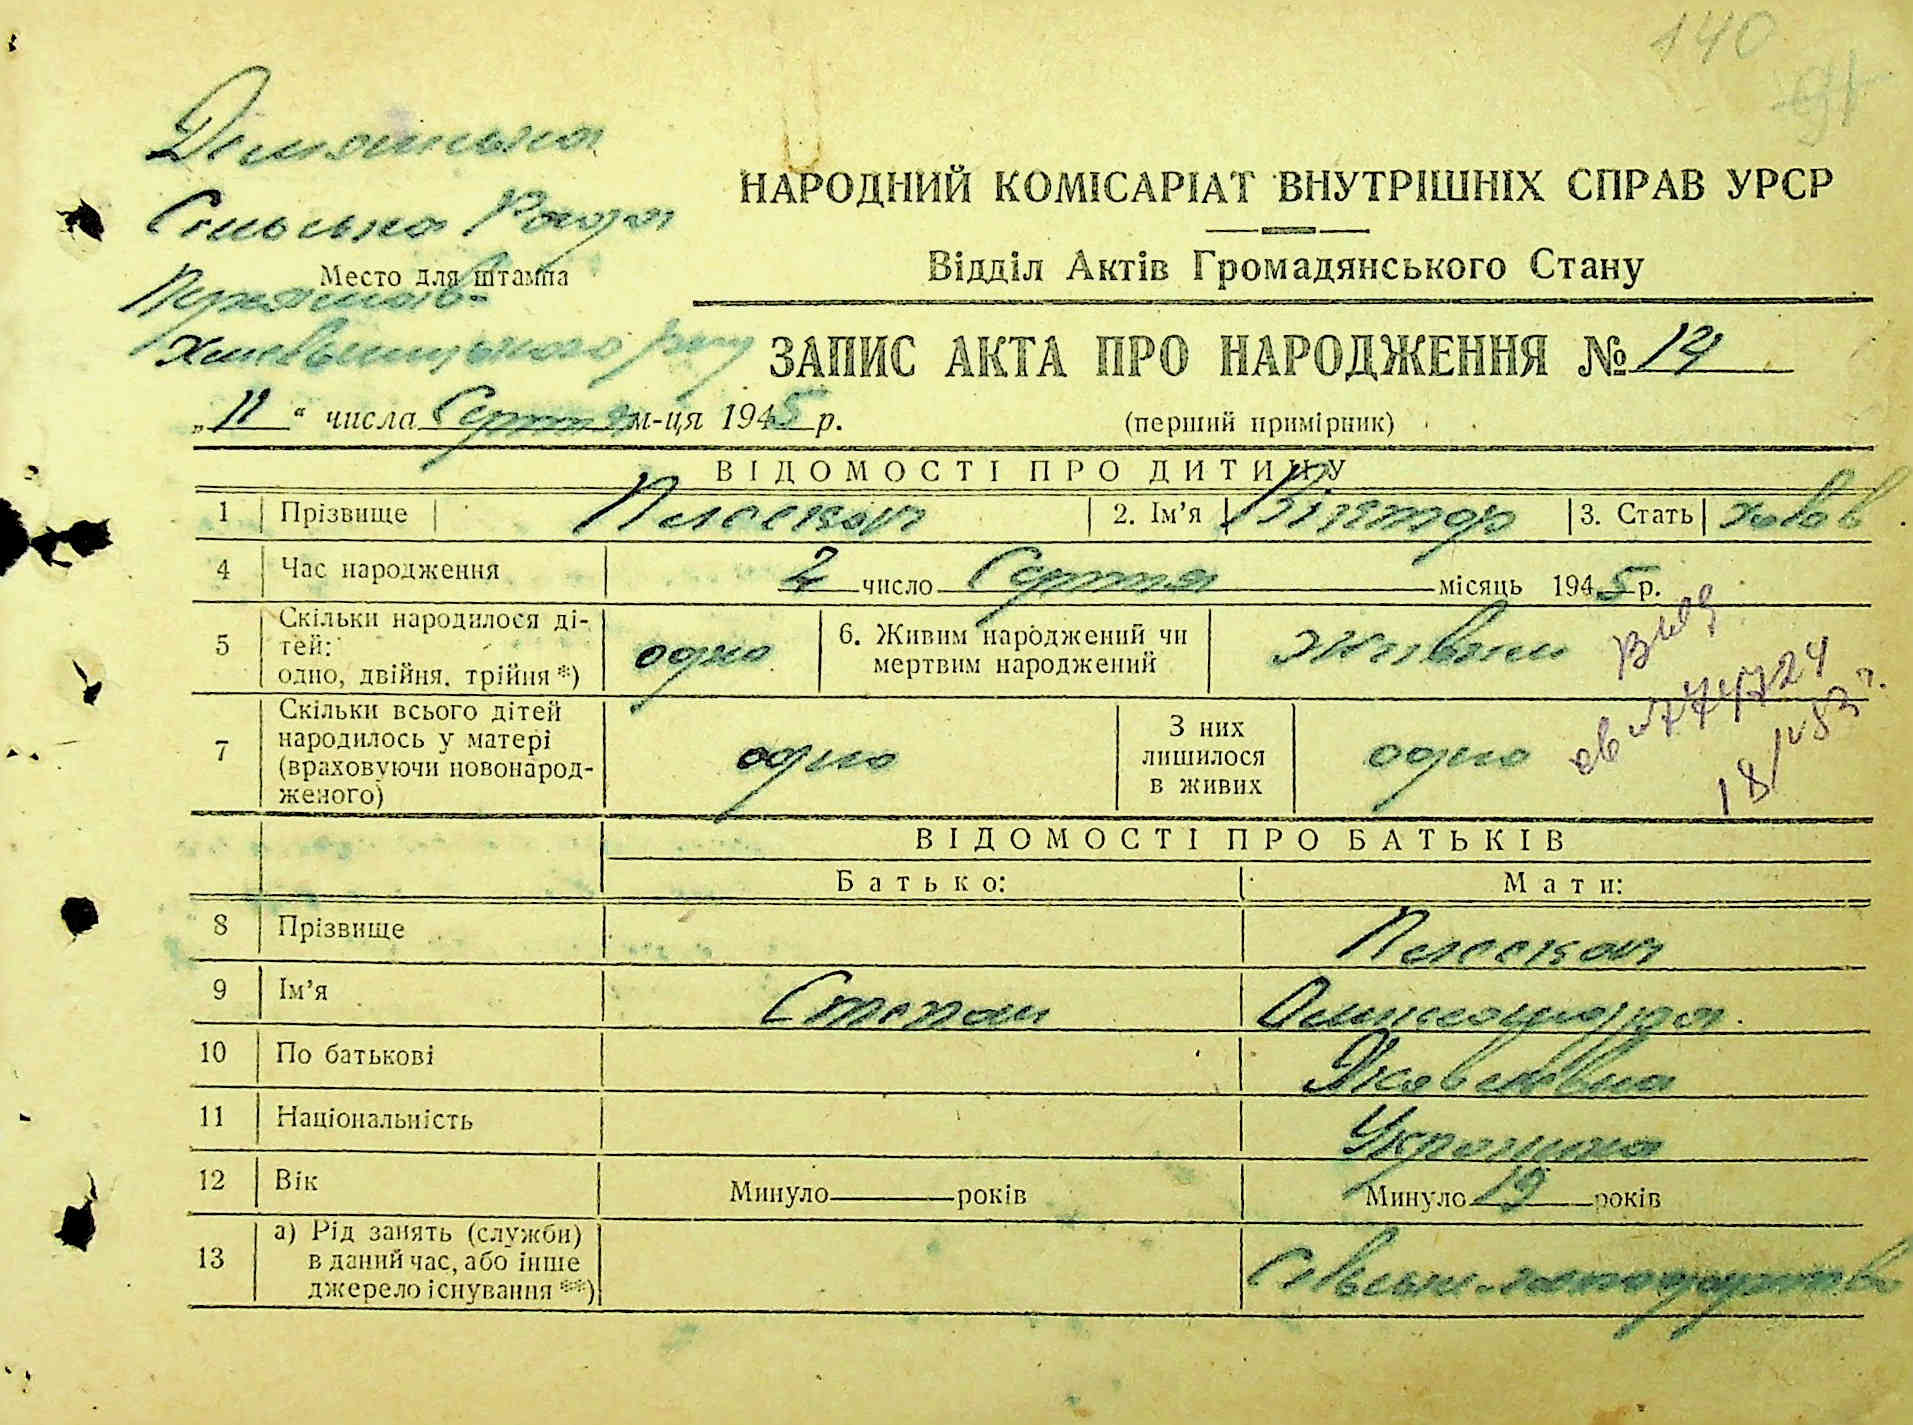 140
91
Демянська
Сільська Рада
Место для штампа
Переяслав-
Хмельницького р-ну
НАРОДНИЙ КОМІСАРІАТ ВНУТРІШНІХ СПРАВ УРСР
Відділ Актів Громадянського Стану
ЗАПИС АКТА ПРО НАРОДЖЕННЯ № 14
„11“ числа Серпня м-ця 1945 р.
(перший примірник)
ВІДОМОСТІ ПРО ДИТИНУ
1 Прізвище Плескач 2. Ім'я Віктор 3. Стать
4 Час народження 2 число Серпня місяць 1945 р.
5 Скільки народилося ді-
тей:
одно, двійня, трійня *) одно 6. Живим народжений чи
мертвим народжений живим
7 Скільки всього дітей
народилось у матері
(враховуючи новонарод-
женого) одно З них
лишилося
в живих одно
ВІДОМОСТІ ПРО БАТЬКІВ
Батько: Мати:
8 Прізвище Плескач
9 Ім'я Степан Олександра
10 По батькові Яковлевна
11 Національність Українка
12 Вік Минуло років Минуло 19 років
13 а) Рід занять (служби)
в даний час, або інше
джерело існування **)